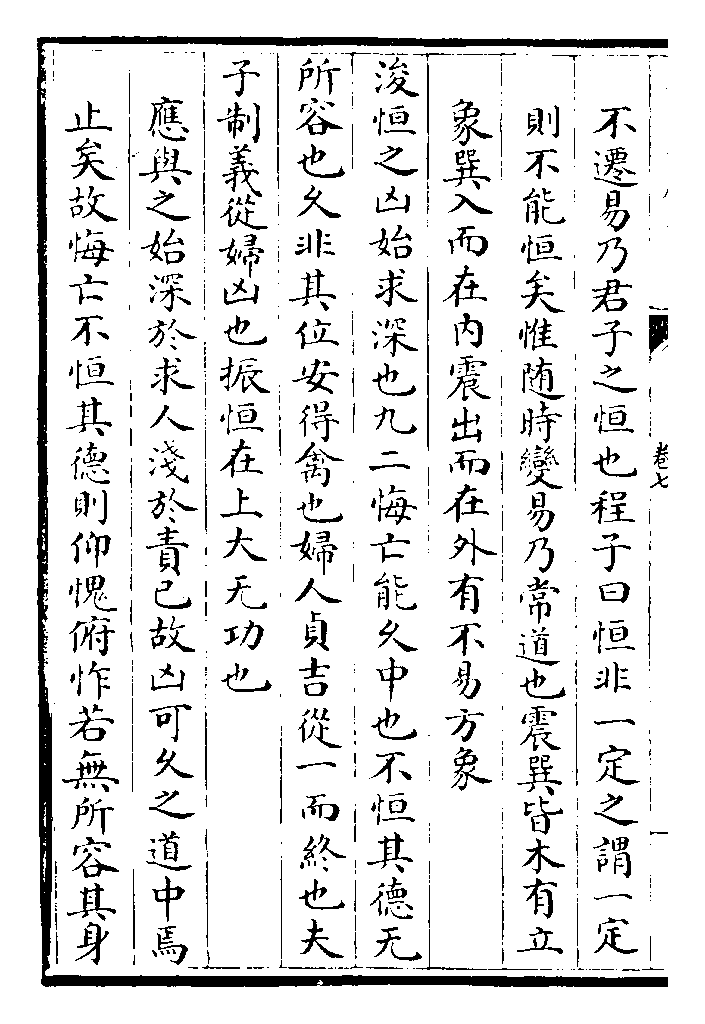 卷七
不遷易乃君子之恒也程子曰恒非一定之謂一定
則不能恒矣惟随時變易乃常道也震巽皆木有立
象巽入而在内震出而在外有不易方象
浚恒之凶始求深也九二悔亡能久中也不恒其德无
所容也久非其位安得禽也婦人貞吉從一而終也夫
子制義從婦凶也振恒在上大无功也
應與之始深於求人淺於責已故凶可久之道中焉
止矣故悔亡不恒其德則仰愧俯怍若無所容其身